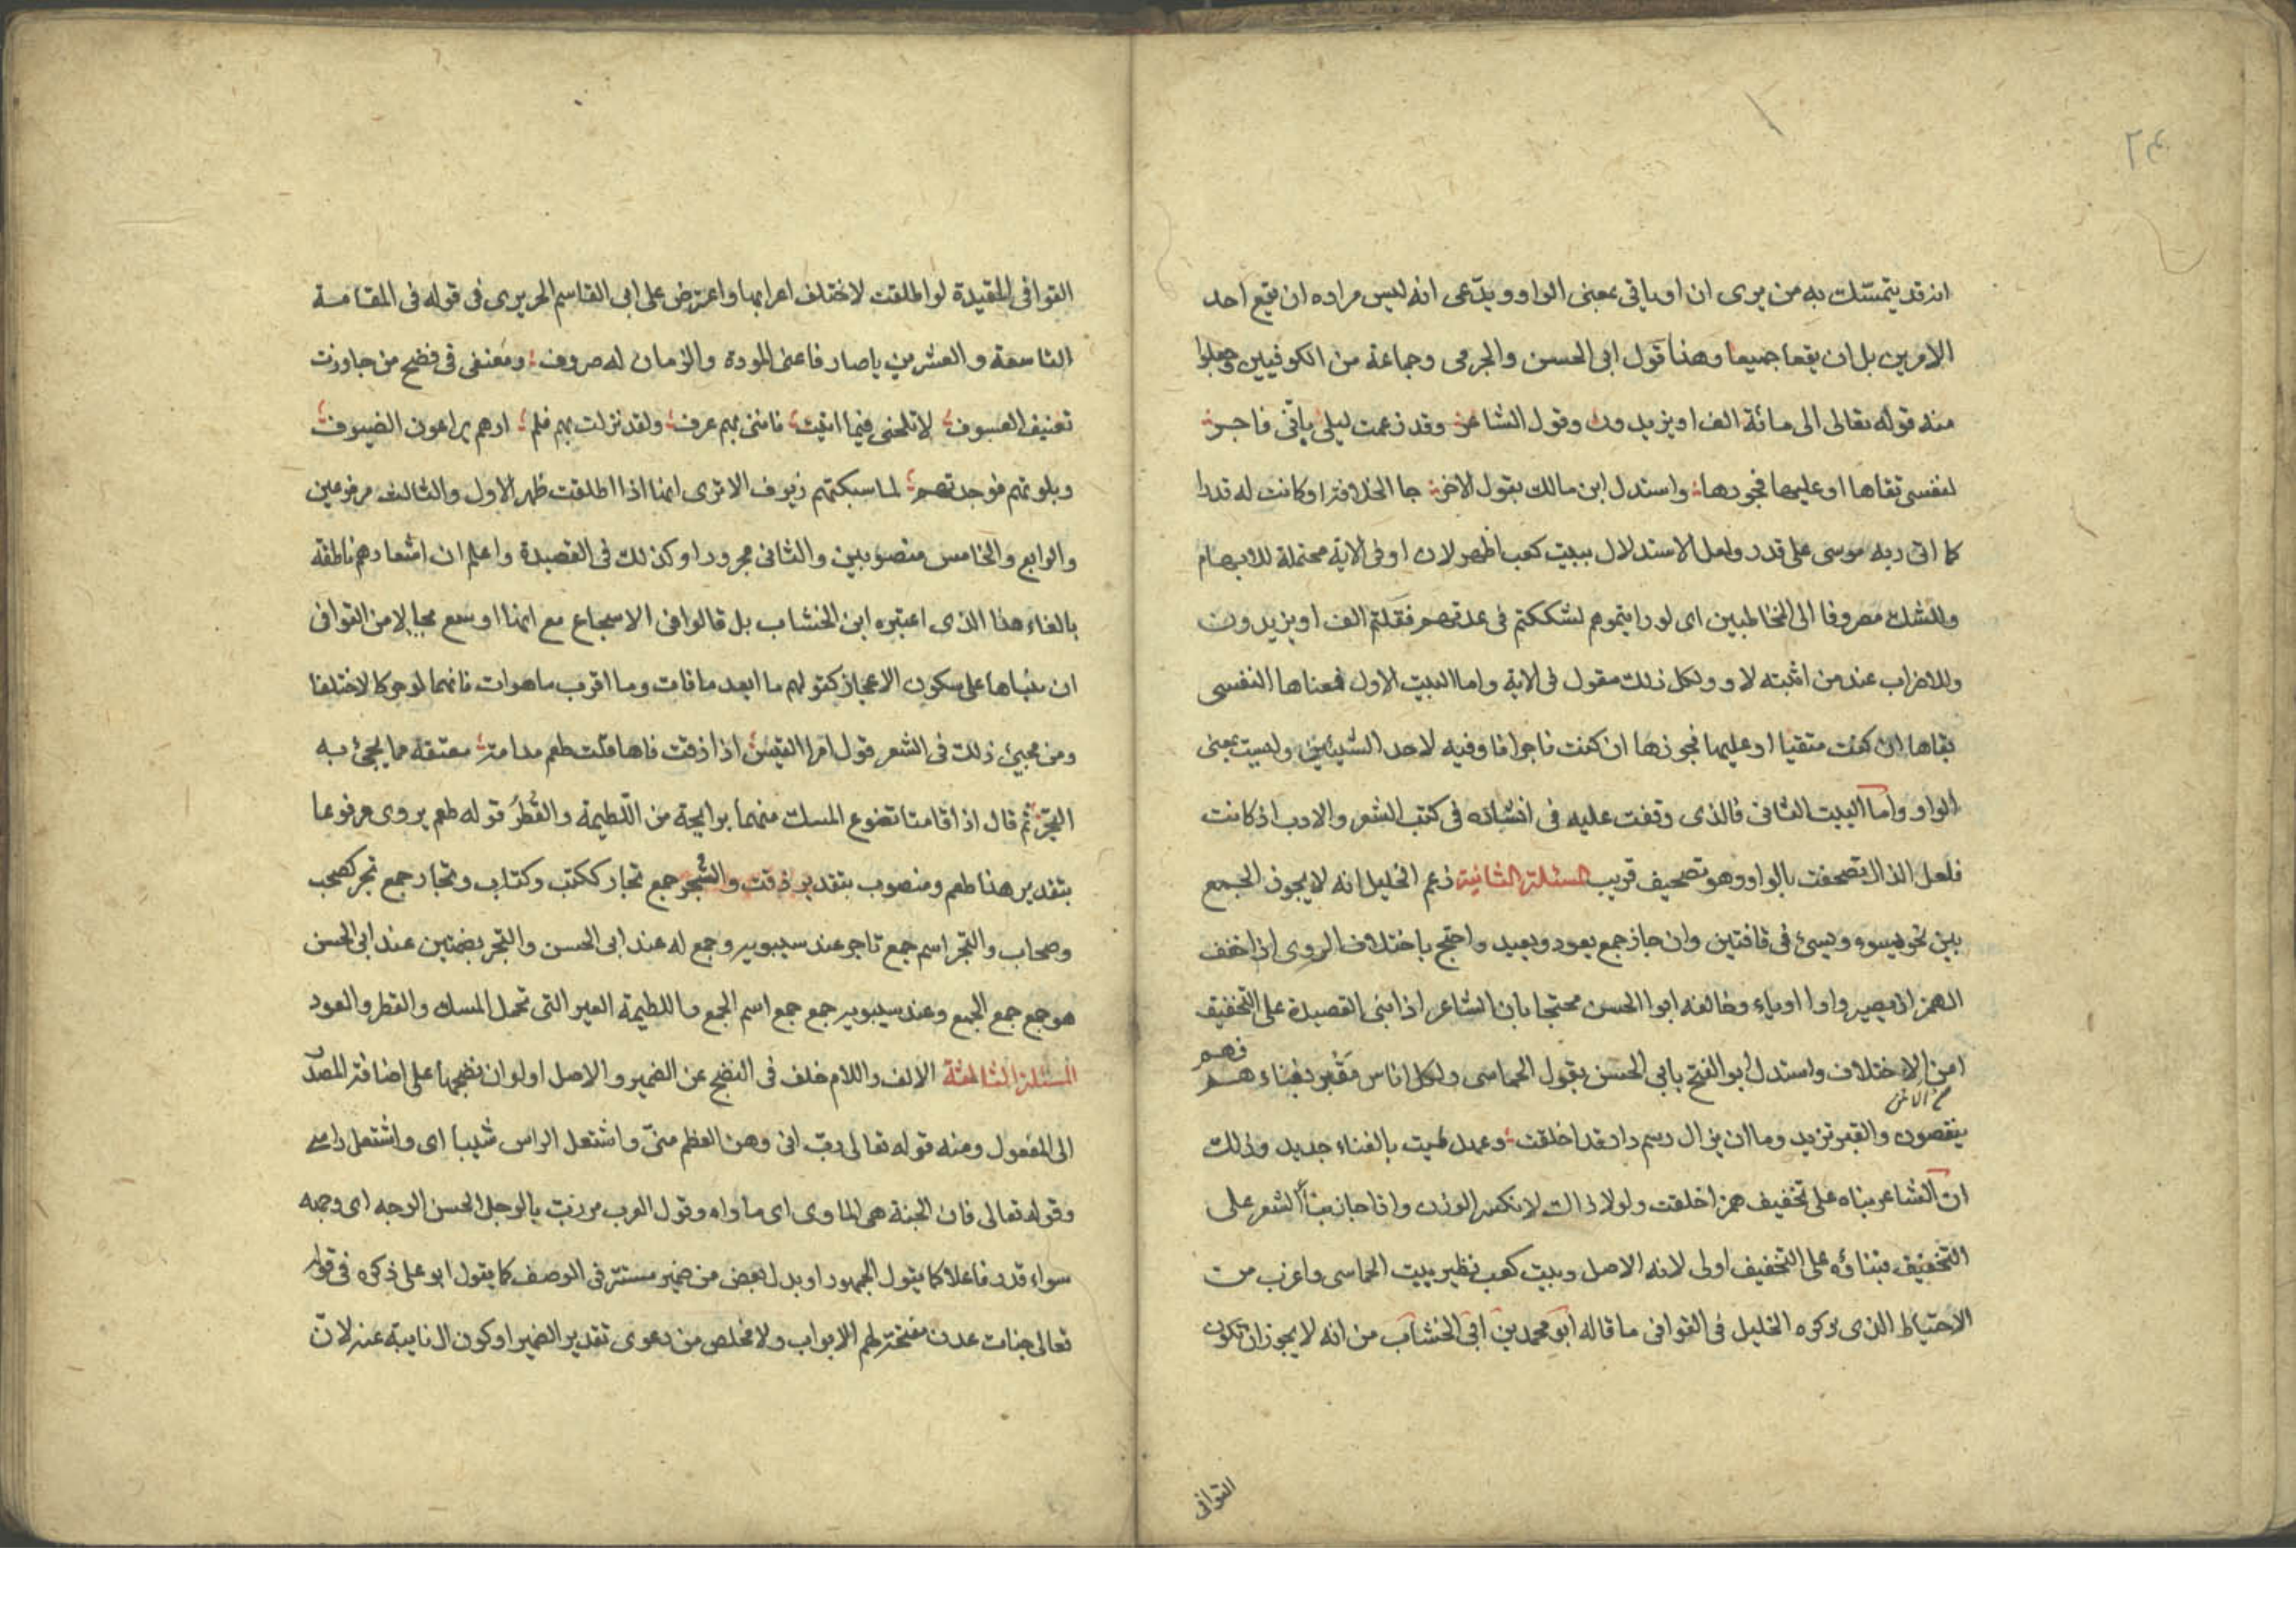 ٢٤
انه قد يتمسّك به من يرى ان او ياتى بمعنى الواو ويدّعى انه ليس مراده ان يقع احد
الامرين بل ان يقعا جميعا وهذا قول ابى الحسن والجرمى وجماعة من الكوفيين وجعلوا
منه قوله تعالى الى مائة الف او يزيدون وقول الشاعر وقد زعمت ليلى بانّى فاجر
لنفسى تقاها او عليها فجورها واستدل ابن مالك بقول الاخر جا الخلافة او كانت له قدرا
كما اتى ربه موسى على قدر ولعل الاستدلال ببيت كعب اظهر لان او فى الاية محتملة للابهام
وللشك مصروفا الى المخاطبين اى لو رايتموهم لشككتم فى عدتهم فقلتم الف او يزيدون
وللاضراب عند من اثبته لاو ولكل ذلك مقول فى الاية واما البيت الاول فمعناها النفسى
تقاها ان كنت متقيا او عليها فجورها ان كنت فاجرا فاوفيه لاحد الشيئين وليست بمعنى
الواو واما البيت الثانى فالذى وقفت عليه فى انشاده فى كتب الشعر والادب اذ كانت
فلعل الذال تصحفت بالواو وهو تصحيف قريب المسئلة الثانية زعم الخليل انه لا يجوز الجمع
بين نحو يسوء ويسئ فى قافتين وان جاز جمع يعود ويعيد واحتج باختلاف الروى اذا خفف
الهمز اذ يصير واوا او ياء وخالفه ابوا الحسن محتجا بان الشاعر اذا بنى القصيدة على التخفيف
امن الاختلاف واستدل ابو الفتح بابى الحسن بقول الحماسى ولكل اناس مقبر بفناءهم فهم
ينقصون والقبر تزيد وما ان يزال رسم دار قد اخلقت وعهد لميت بالفناء جديد وذلك
ان الشاعر بناه على تخفيف همز اخلقت ولولا ذالك لانكسر الوزن واذا جاز بنأ الشعر على
التخفيف فبناؤه على التخفيف اولى لانه الاصل وبيت كعب نظير بيت الحماسى واغرب من
الاحتياط الذى ذكره الخليل فى القوافى ما قاله ابو محمد بن ابى الخشاب من انه لا يجوز ان تكون
القوافى
القوافى المقيدة لو اطلقت لاختلف اعرابها واعترض على ابى القاسم الحريرى فى قوله فى المقامة
التاسعة والعشرين ياصارفا عنى المودة والزمان له صروف ومعنفى فى فضح من جاوزت
تعنيف العسوف لا تلحنى فيما اتيت فاننى بهم عرف ولقد نزلت بهم فلم ارهم يراعون الضيوف
وبلوتهم فوجدتهم لما سبكتهم زيوف الا ترى انها اذا اطلقت ظهر الاول والثالث مرفوعين
والرابع والخامس منصوبين والثانى مجرورا وكذلك فى القصيدة واعلم ان اشعارهم ناطقة
بالغاء هذا الذى اعتبره ابن الخشاب بل قالوا فى الاسجاع مع انها اوسع مجالا من القوافى
ان مبناها على سكون الاعجاز كقولهم ما ابعد ما فات وما اقرب ما هوات فانهما لو حركا لاختلفا
ومن مجيئ ذلك فى الشعر قول امرا القيس اذا ذقت فاها قلت طعم مدامة معتقة مما يجئ به
التجر ثم قال اذا قامتا تضوع المسك منهما برايحة من اللطيمة والقطر قوله طعم يروى مرفوعا
بتقدير هذا طعم ومنصوب بتقدير ذقت والتجر جمع تجار ككتب وكتاب وتجار جمع تجر كصحب
وصحاب والتجر اسم جمع تاجر عند سيبويه وجمع له عند ابى الحسن والتجر بضمتين عند ابى الحسن
هو جمع جمع الجمع وعند سيبويه جمع جمع اسم الجمع واللطيمة العير التى تحمل المسك والقطر والعود
المسئلة الثالثة الالف واللام خلف فى النضج عن الضمير والاصل اولوان نضجها على اضافة المصدر
الى المفعول ومنه قوله تعالى ربّ انى وهن العظم منّى واشتعل الراس شيبا اى واشتعل راسى
وقوله تعالى فان الجنة هى الماوى اى ماواه وقول العرب مررت بالرجل الحسن الوجه اى وجهه
سواء قدر فاعلا كما يقول الجمهور او بدل بعض من ضمير مستتر فى الوصف كما يقول ابو على ذكره فى قوله
تعالى جنات عدن مفتحة لهم الابواب ولا مخلص من دعوى تقدير الضمير او كون ال نايبة عنه لانّ